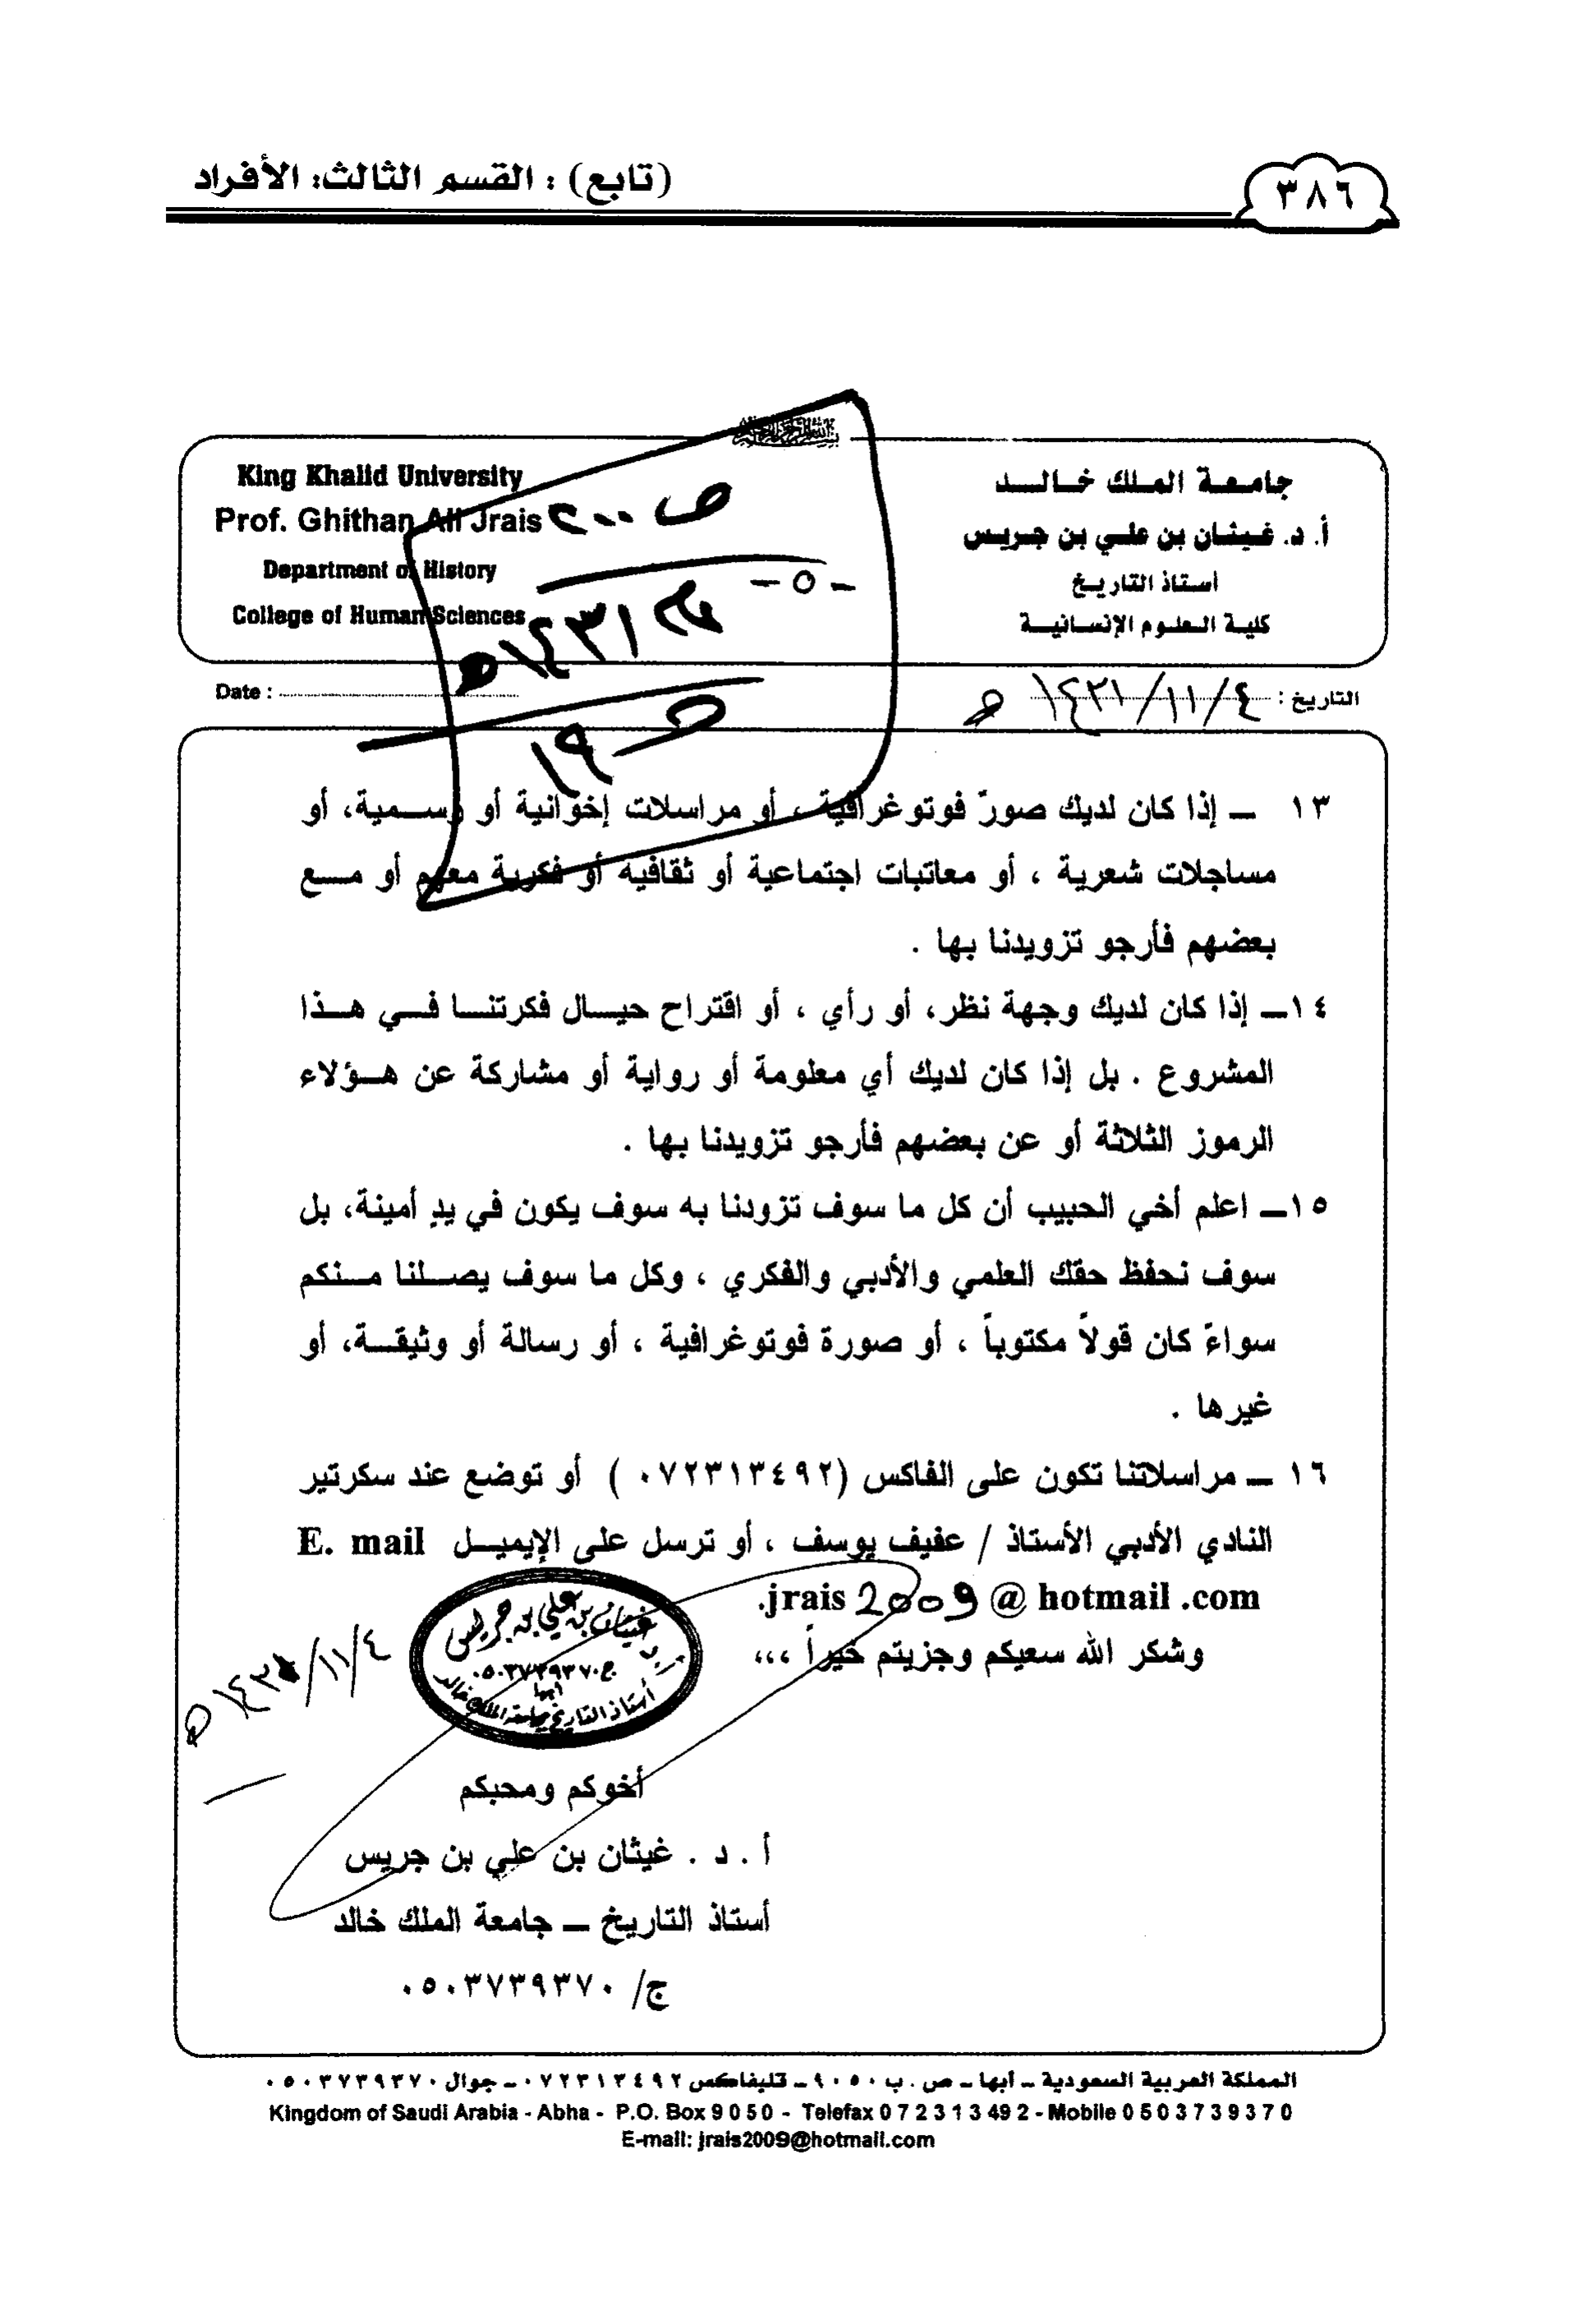 (تابع) : القسم الثالث: الأفراد
٣٨٦
جامعة الملك خالد
أ. د. غيثان بن علي بن جريس
أستاذ التاريخ
كلية العلوم الإنسانية
King Khalid University
Prof. Ghithan Ali Jrais
Department of History
College of Human Sciences
ص ٢٠٠
- ٥ -
١٤٣١ هـ
١٩
التاريخ : ١٤٣١/١١/٤ هـ
Date :
١٣ ـ إذا كان لديك صورٌ فوتوغرافية ، أو مراسلات إخوانية أو رسمية، أو
مساجلات شعرية ، أو معاتبات اجتماعية أو ثقافيه أو فكرية معهم أو مع
بعضهم فأرجو تزويدنا بها .
١٤ـ إذا كان لديك وجهة نظر، أو رأي ، أو اقتراح حيال فكرتنا في هذا
المشروع . بل إذا كان لديك أي معلومة أو رواية أو مشاركة عن هؤلاء
الرموز الثلاثة أو عن بعضهم فأرجو تزويدنا بها .
١٥ـ اعلم أخي الحبيب أن كل ما سوف تزودنا به سوف يكون في يدٍ أمينة، بل
سوف نحفظ حقك العلمي والأدبي والفكري ، وكل ما سوف يصلنا منكم
سواءً كان قولاً مكتوباً ، أو صورة فوتوغرافية ، أو رسالة أو وثيقة، أو
غيرها .
١٦ ـ مراسلاتنا تكون على الفاكس (٠٧٢٣١٣٤٩٢ ) أو توضع عند سكرتير
النادي الأدبي الأستاذ / عفيف يوسف ، أو ترسل على الإيميل E. mail
.jrais 2009 @ hotmail .com
وشكر الله سعيكم وجزيتم خيراً ،،،
غيثان بن علي بن جريس
ج٠٥٠٣٧٣٩٣٧٠
أبها
أستاذ التاريخ بجامعة الملك خالد
١٤٣١/١١/٤ هـ
أخوكم ومحبكم
أ . د . غيثان بن علي بن جريس
أستاذ التاريخ ـ جامعة الملك خالد
ج/ ٠٥٠٣٧٣٩٣٧٠
المملكة العربية السعودية ـ أبها ـ ص . ب ٩٠٥٠ ـ تليفاكس ٠٧٢٣١٣٤٩٢ ـ جوال ٠٥٠٣٧٣٩٣٧٠
Kingdom of Saudi Arabia - Abha - P.O. Box 9 0 5 0 - Telefax 0 7 2 3 1 3 49 2 - Mobile 0 5 0 3 7 3 9 3 7 0
E-mail: jrais2009@hotmail.com